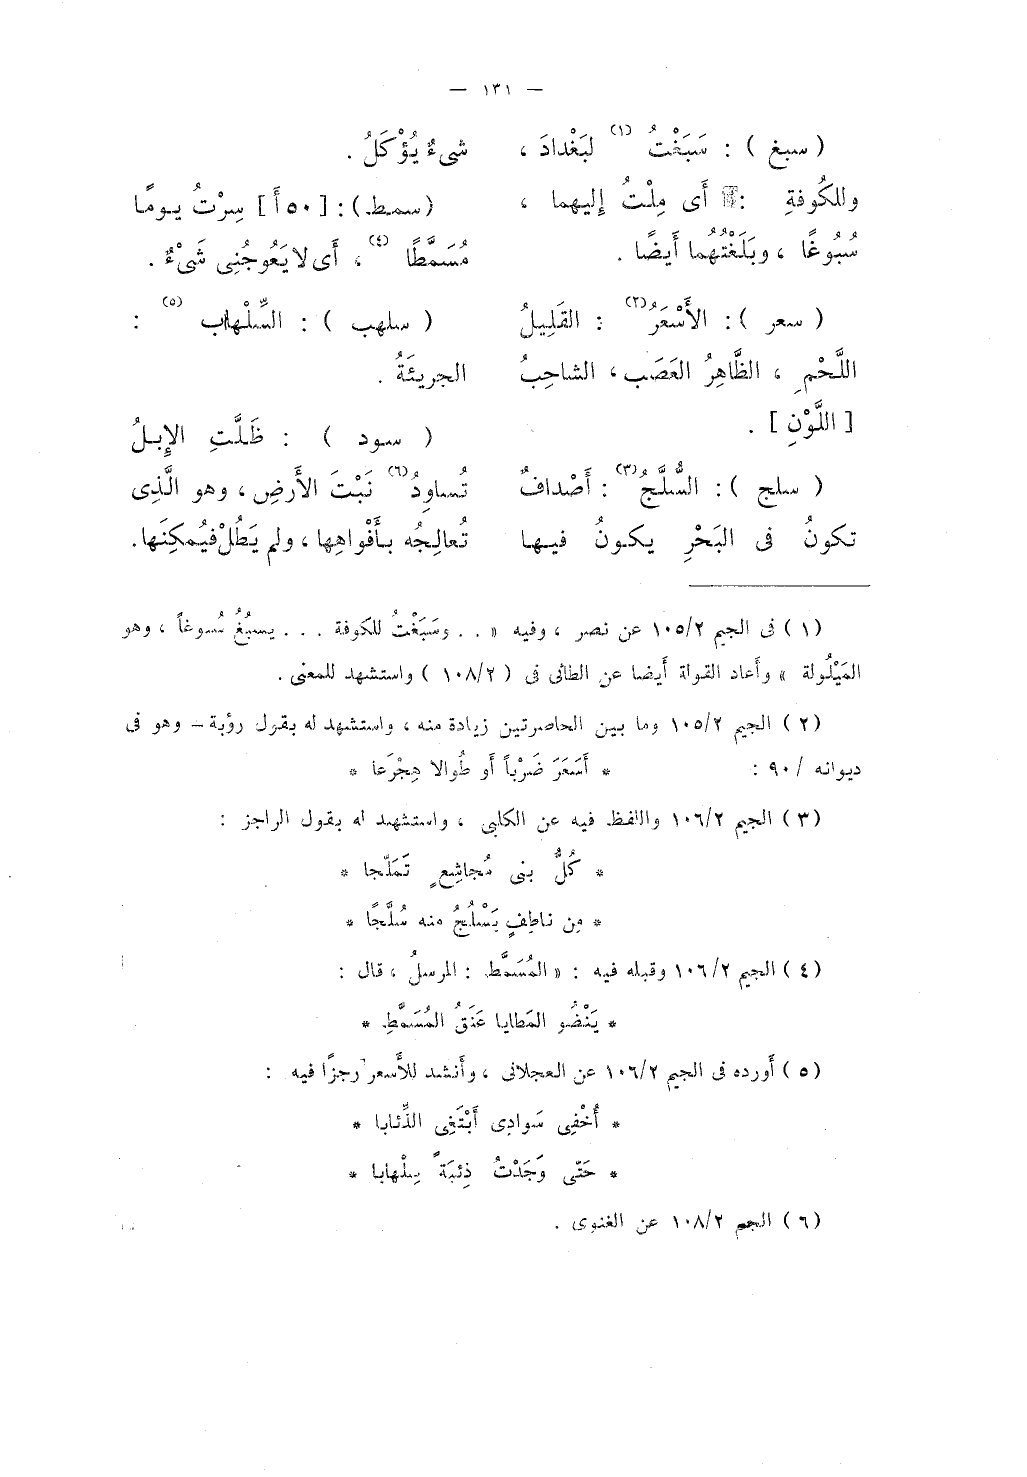 — ١٣١ —
( سبغ ) : سَبَغْتُ (١) لبَغْدادَ ،
وللكُوفةِ : أَى مِلْتُ إليهما ،
سُبُوغًا ، وبَلَغْتُهُما أَيضًا .
( سعر ) : الأَسْعَرُ (٢) : القَلِيلُ
اللَّحْمِ ، الظَّاهِرُ العَصَب ، الشاحِبُ
[ اللَّوْنِ ] .
( سلج ) : السُّلَّجُ (٣) : أَصْدافٌ
تكونُ فى البَحْرِ يكونُ فيها
شىءٌ يُؤْكَلُ .
( سمط ) : [ ٥٠ أ ] سِرْتُ يومًا
مُسَمَّطًا (٤) ، أَى لا يَعُوجُنِى شَىْءٌ .
( سلهب ) : السِّلْهاب (٥) :
الجريئَةُ .
( سود ) : ظَلَّتِ الإِبلُ
تُساوِدُ (٦) نَبْتَ الأَرضِ ، وهو الَّذِى
تُعالِجُه بأَفْواهِها ، ولم يَطُلْ فيُمكِنَها .
( ١ ) فى الجيم ٢/‏١٠٥ عن نصر ، وفيه « .. وسَبَغْتُ للكوفة ... يسبُغُ سُبوغاً ، وهو
المَيْلُولة » وأعاد القولة أيضا عن الطائى فى ( ٢/‏١٠٨ ) واستشهد للمعنى .
( ٢ ) الجيم ٢/‏١٠٥ وما بين الحاصرتين زيادة منه ، واستشهد له بقول رؤبة – وهو فى
ديوانه /‏٩٠ : * أَسَعَرَ ضَرْباً أَو طُوالا هِجْرَعا *
( ٣ ) الجيم ٢/‏١٠٦ واللفظ فيه عن الكلبى ، واستشهد له بقول الراجز :
* كُلُّ بنى مُجاشِعٍ تَمَلّجا *
* مِن ناطِفٍ يَسْلُجُ منه سُلَّجًا *
( ٤ ) الجيم ٢/‏١٠٦ وقبله فيه : « المُسَمَّط : المرسلُ ، قال :
* يَنْضُو المَطايا عَنَقُ المُسَمَّطِ *
( ٥ ) أورده فى الجيم ٢/‏١٠٦ عن العجلانى ، وأنشد للأَسعر رجزًا فيه :
* أُخْفِى سَوادِى أَبْتَغِى الذِّئابا *
* حَتّى وَجَدْتُ ذِئبَةً سِلْهابا *
( ٦ ) الجيم ٢/‏١٠٨ عن الغنوى .